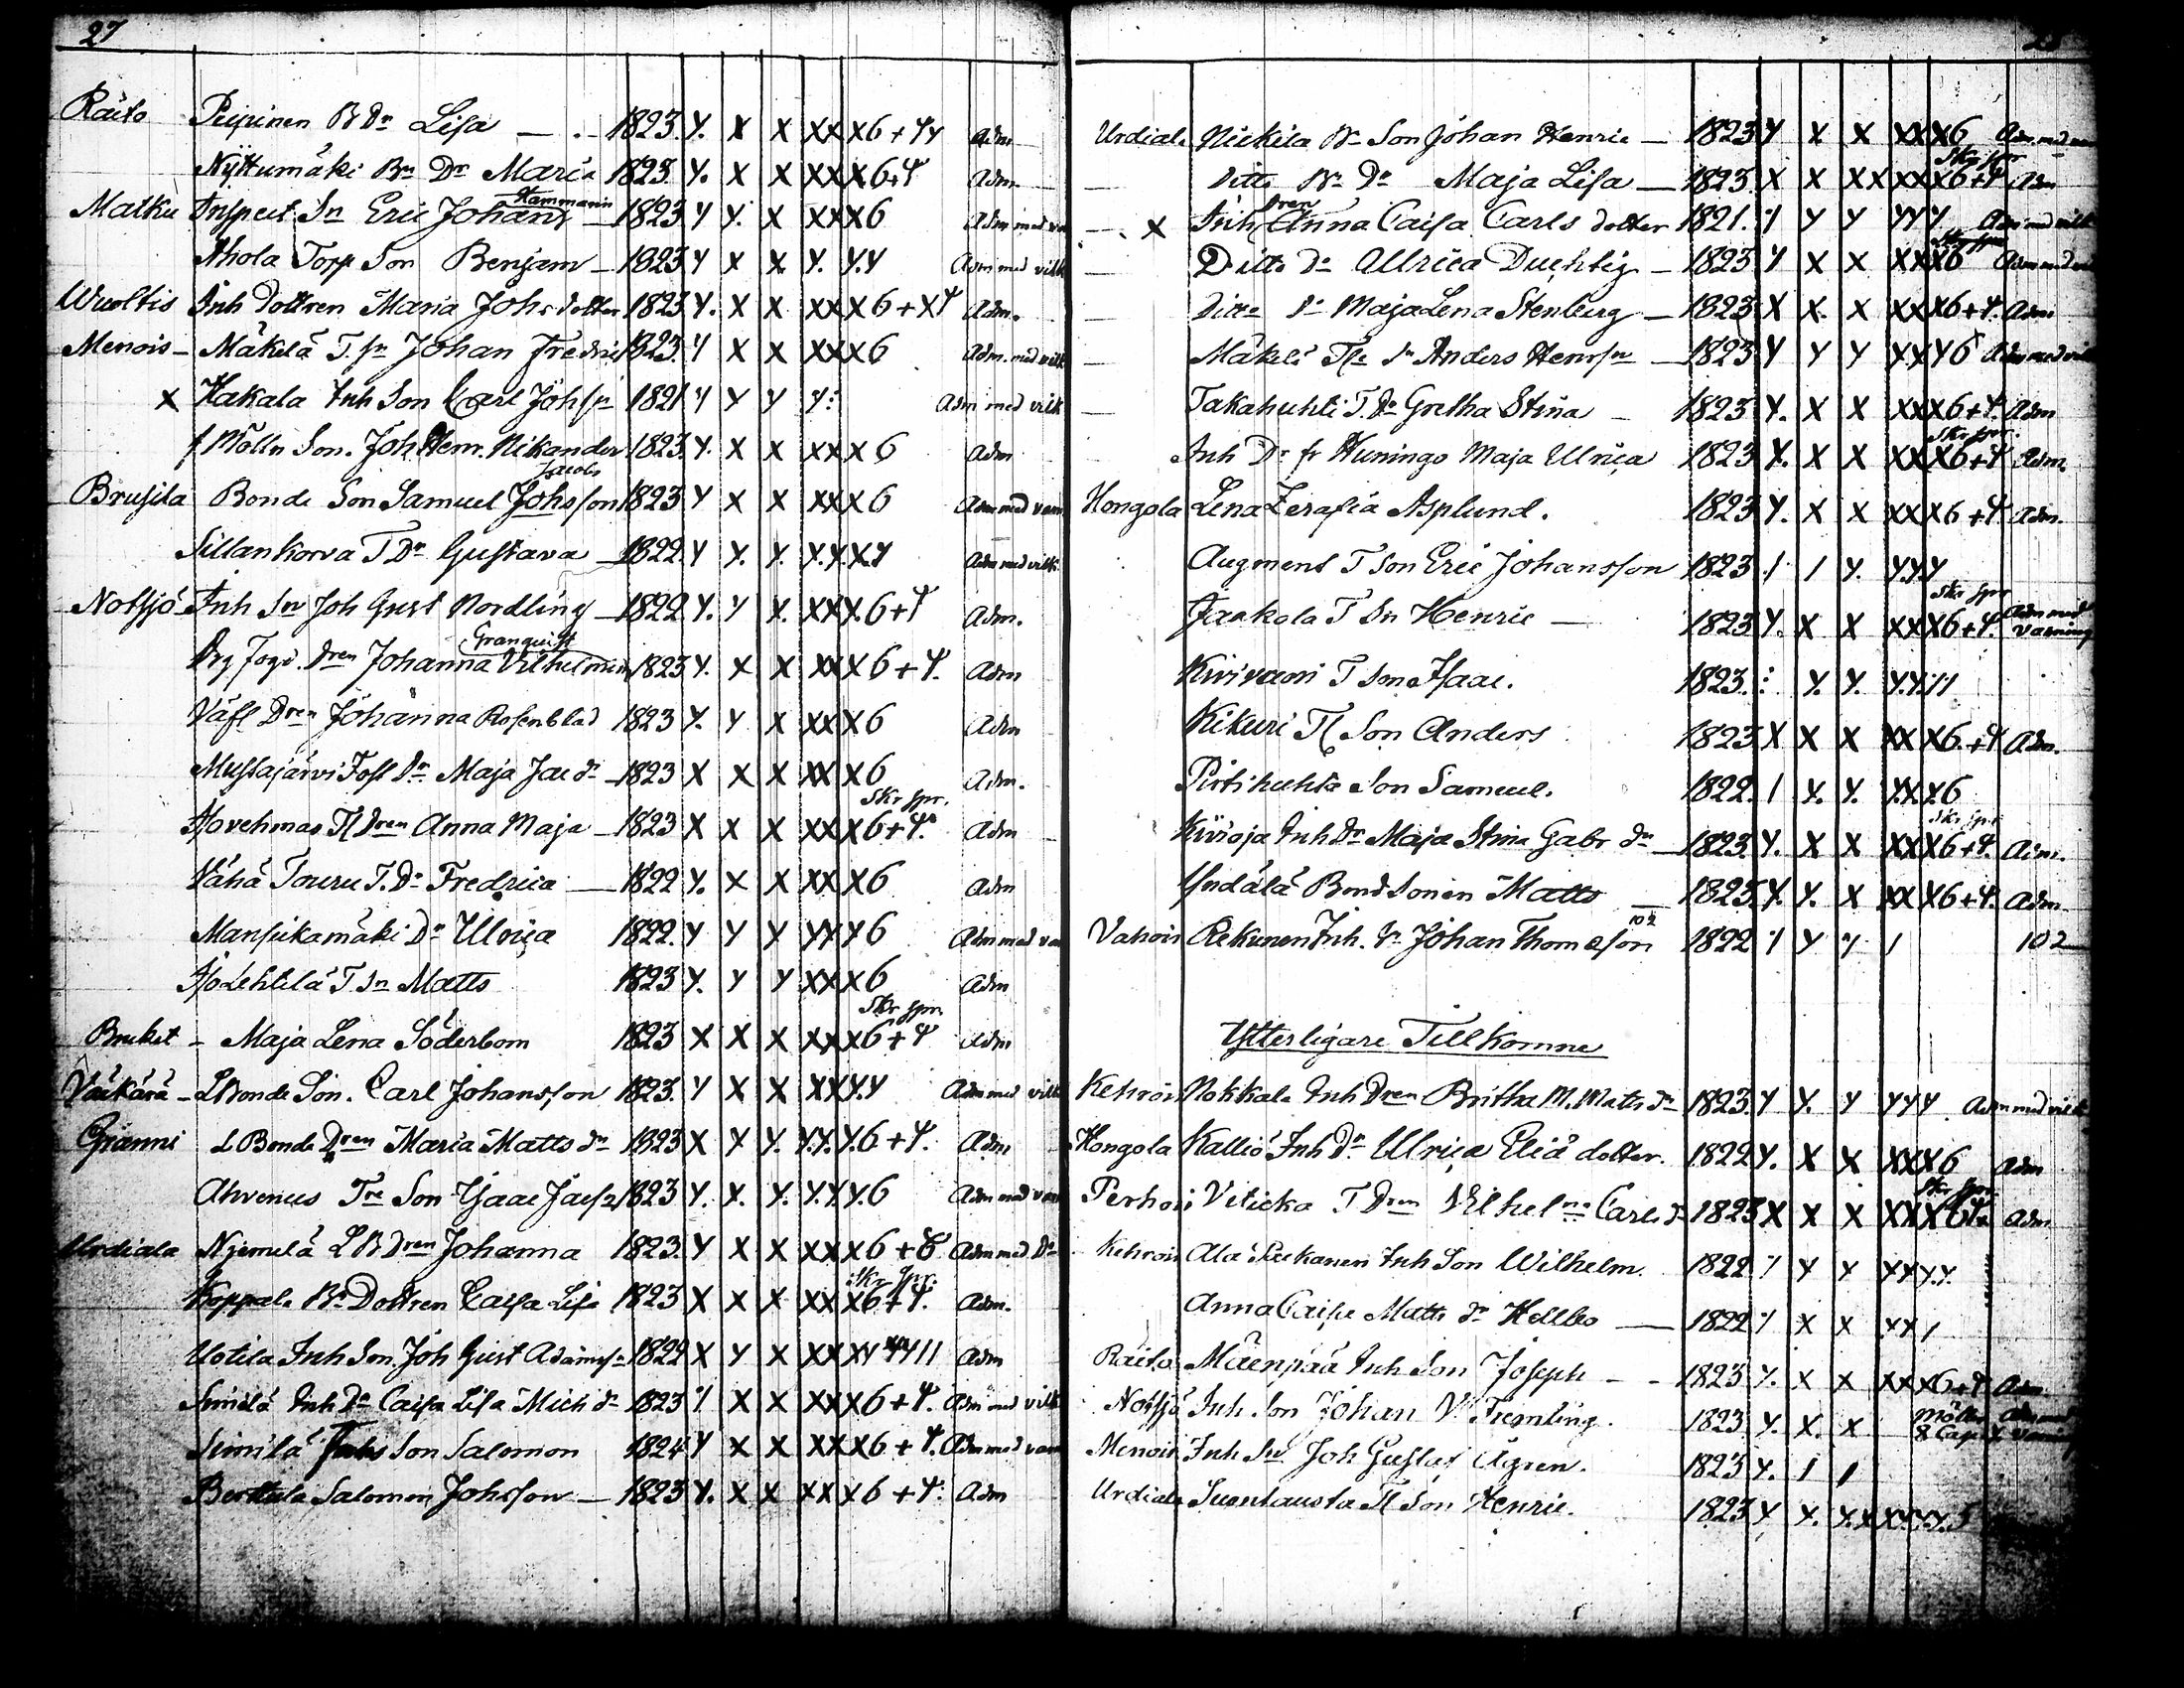 27
Räito Peipinen B Dr Lisa — . – 1823. Y. X X XX X6 + YY Adm
Nyttumäki Bn Dr Maria 1823. Y. X X XX X.6+Y Adm.
Hammarin
Matku Inspect Sn Eric Johans — 1823 Y Y. X XX X6 Adm med va
Ahola Torp Son Benjam — 1823 Y X X. Y. Y.Y Adm med vilk
Wuoltis Inh Dottren Maria Johs dotter 1823 Y. X X XX X6 + XY Adm.
Menois – Mäkelä T. Sn Johan Fredric 1823. Y X X XX X6 Adm. med vilk
X Hakala Inh Son Carl Joh sn 1821 Y Y Y Y: Adm med vilk
f Mölln Son. Joh Henr. Nikander 1823. Y. X X XX X6 Adm
Jacobs
Brusila Bonde Son Samuel Johsson 1823 Y X X XX X6 Adm med varn
Sillankorva T Dr Gustava — 1822. Y Y. Y. Y.Y. X.Y Adm med vilk.
Notsjö Inh Sn Joh Gust Nordling — 1822 Y. Y X. XX X.6+Y Adm.
Granquist
Dren Johanna Vilhelmin 1823 Y. X X XX X 6 + Y. Adm
Dren Johanna Rosenblad 1823 Y. Y X XX X6 Adm
Mussajärvi Dr Maja Jac dr — 1823 X X X XX X6 Adm.
Skr spr.
Isovehmas Tl Dren Anna Maja — 1823 X X X XX X6+Y. Adm
Vähä Touru T. Dr Fredrica — 1822 Y. X X XX X6 Adm
Mansikamäki Dr Ulrica 1822. Y Y Y YY Y6 Adm med va
Iso Lehtilä T. Sn Matts 1823 Y. Y Y XX X6 Adm
Skr spr.
Bruket – Maja Lena Söderbom 1823 X X X XX X6+Y Adm
Väkärä – L Bonde Son. Carl Johansson 1823. Y X X XX Y.Y Adm med vilk
Gränni L Bonde Dren Maria Matts dr 1823 X Y Y. Y.Y. Y.6+Y. Adm
Ahvenus Trp Son Isaac Jacs 1823 Y. Y. Y. Y.Y. Y.6 Adm med var
Urdiala Njemelä L B Dren Johanna 1823. Y X X XX X6 + 6 Adm med Do
Skr spr.
Koppala Bn Dottren Caisa Lisa 1823 X X X XX X6+Y. Adm.
Uotila Inh Son. Joh Gust Adamss 1822 X Y X XX XY YY11 Adm
Similä Inh Dr Caisa Lisa Mich dr 1823 Y X X XX X6+Y. Adm med vilk
Similä Inhs Son Salomon 1824 Y X X XX X6+Y. Adm med varn
Berttula Salomon Johsson — 1823 Y. X X XX X6+Y. Adm
28
Urdiala Nickila Bn Son Johan Henric — 1823 Y X X XX X6 Adm. med varn
Skr spr
— Ditto Bn Dr Maja Lisa — 1823. X X XX XX X6+Y Adm
dren
— X Inh Anna Caisa Carls dotter 1821. Y Y Y YY Y Adm med vilk
Skr spr
— Ditto Dr Ullrica Duchtig — 1823 Y X X XX X6 Adm med
— Ditto Dr Maja Lena Stenberg — 1823 X X. X XX X6+Y. Adm
— Mäkelä Sn Anders Henrsn — 1823 Y Y Y Y.Y. Y6 Adm med vilk
— Takahuhti T. Dr Gretha Stina — 1823 Y. X X XX X6+Y. Adm
Skr spr.
Inh Dr fr Huningo Maja Ulrica 1823 Y. X X XX X6+Y Adm,
Hongola Lena Zerafia Asplund. 1823 Y. X X XX X6+Y Adm.
Augment T Son Eric Johansson 1823 / / Y. Y.Y. Y
Skr spr
Jaakola T Sn Henric — 1823 Y. X X XX X6+Y. Adm med varning
Kivivaori T Son Isaac. 1823. : Y. Y. Y.Y. 11
Kikuri Tl Son Anders 1823 X X X XX X6+Y Adm.
Pirtikuhta Son Samuel. 1822. / Y. Y. Y.X Y.6
Skr spr
Kivioja Inh Dr Maja Stina Gabr dr — 1823. Y. X X XX X6+Y. Adm.
Yndälä Bond Sonen Matts — 1823. Y. Y. X XX X6+Y. Adm
102
Vahois Rekunen Inh. Sn Johan Thomasson 1822 Y Y Y / 102
Ytterligare Tillkomne
Kehrois Nokkala Inh Dren Britha M. Matts dr 1823. Y Y. Y YY Y Adm med vilk
Hongola Kallio Inh Dr Ulrica Elia dotter. 1822 Y. X X XX X6 Adm
Skr spr
Perhois Veticka T Dren Vilhelna Carls dr 1823 X X X XX X6 Adm
Kehrois Ala Inh Son Wilhelm. 1822 Y Y X XX Y.Y.
Anna Caisa Matts dr Hellbo — 1822 Y X X YY /
Räito Mäenpää Inh Son Joseph – – 1823 Y. X X XX X6+Y Adm
Notsjö Inh. Son Johan V. Fremling. 1823 Y. X. X Möller & Cap.
Menois Inh Sn Joh Gustaf Ågren. 1823 Y. / /
Urdiala Suonlausta Tl Son Henric. 1823 Y Y. Y.